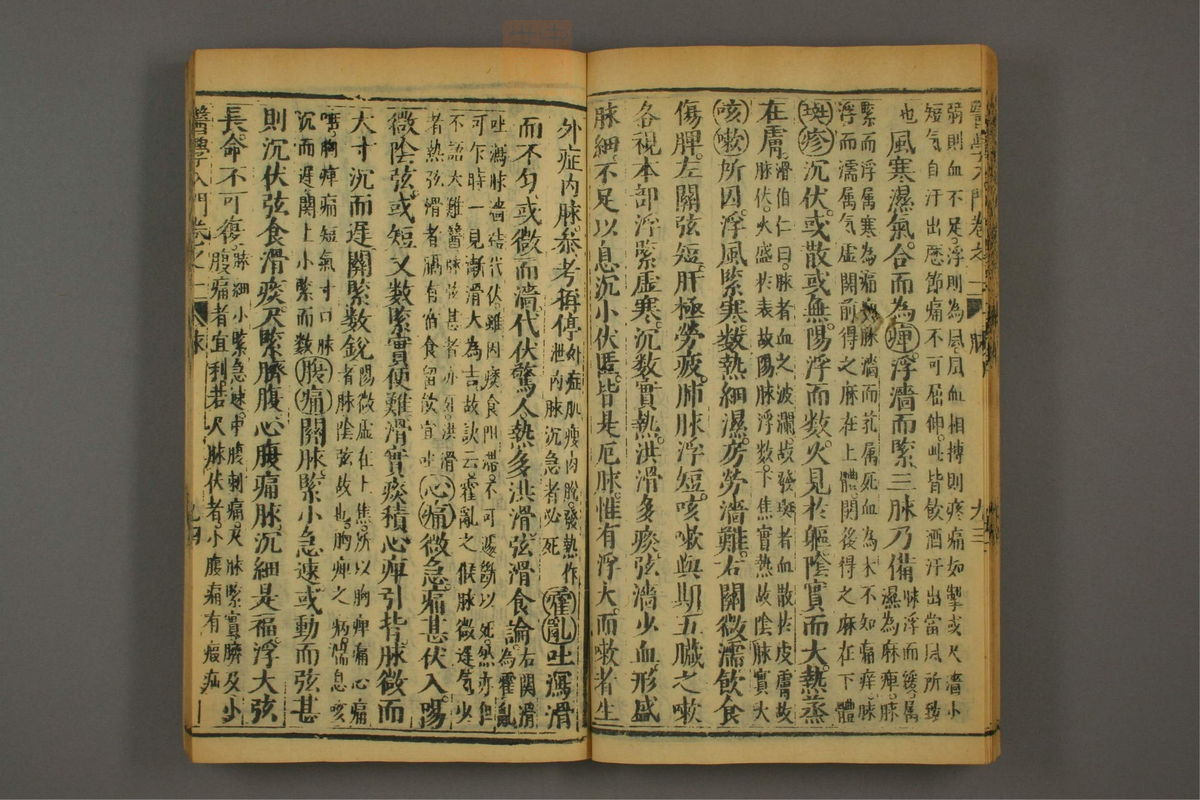 醫學入門卷之一 脉 九三
弱則血不足浮則為風風血相搏則疼痛如掣或尺濇小
短氣自汗出歷節痛不可屈伸此皆飲酒汗出當風所致
也風寒濕氣合而為痺浮濇而緊三脉乃備脉浮而緩属濕為麻痺脉
緊而浮属寒為痛痺脉濇而芤属死血為木不知痛痒脉
浮而濡属气虚關前得之麻在上體関後得之麻在下體
斑疹沉伏或散或無陽浮而数火見於軀陰實而大熱蒸
在膚滑伯仁曰脉者血之波瀾故發斑者血散於皮膚故脉伏火盛於表故陽脉浮数下焦實熱故陰脉實大
咳嗽所因浮風緊寒数熱細濕房勞濇難右關微濡飲食
傷脾左關弦短肝極勞疲肺脉浮短咳嗽與期五臟之嗽
各視本部浮緊虛寒沉数實熱洪滑多痰弦濇少血形盛
脉細不足以息沉小伏匿皆是厄脉惟有浮大而嗽者生
外症内脉參考稱停外症肌瘦肉脫發熱作泄内脉沉急者必死霍亂吐瀉滑
而不匀或微而濇代伏驚人熱多洪滑弦滑食論右関滑為霍亂
吐瀉脉濇結代伏雖因痰食阻滯不可遽斷以死然亦但
可乍時一見漸滑大為吉故訣云霍亂之候脉微遲气少
不語大難醫脉弦甚者亦困洪滑
者熱弦滑者膈有宿食留飲宜吐心痛微急痛甚伏入陽
微陰弦或短又数緊實便難滑實痰積心痺引背脉微而
大寸沉而遲關緊数銳陽微虚在上焦所以胸痺痛心痛者脉陰弦故也胸痺之病喘息咳
唾胸痺痛短氣寸口脉沉而遲関上小緊而数腹痛關脉緊小急速或動而弦甚
則沉伏弦食滑痰尺緊臍腹心腹痛脉沉細是福浮大弦
長命不可復脉細小緊急速中腹刺痛尺脉緊實臍及小腹痛者宜利若尺脉伏者小腹痛有瘕疝
醫學入門卷之一 脉 九四